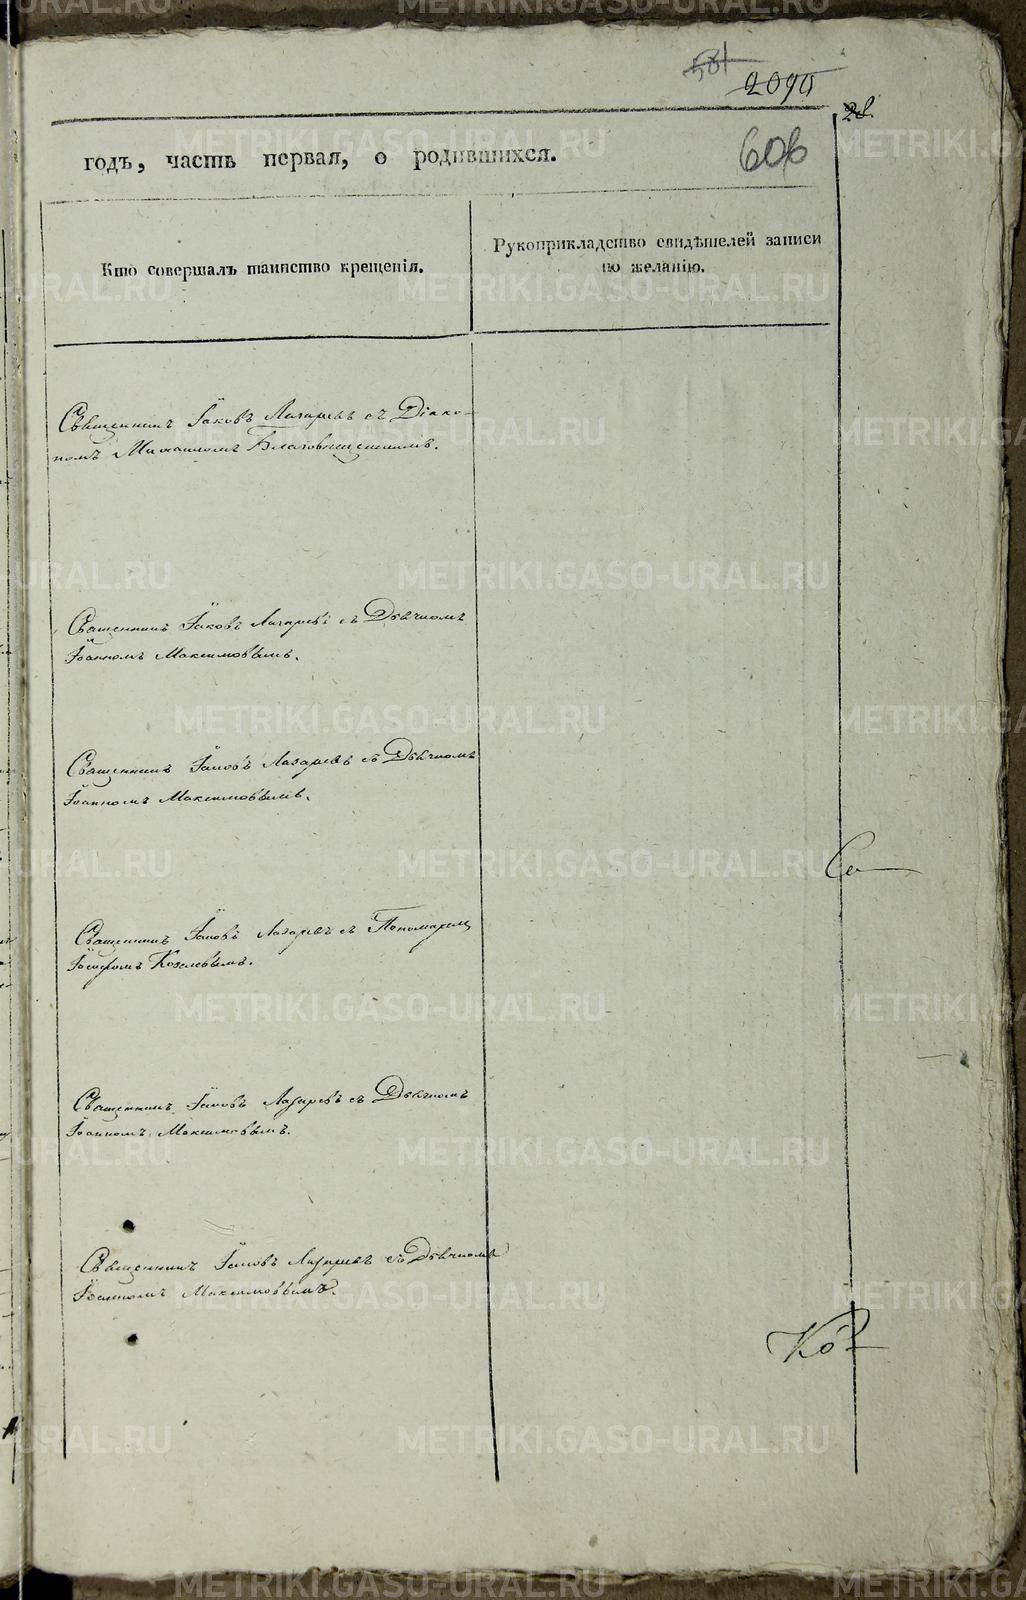 501
2090
28.
606
годъ, часть первая, о родившихся.
Кто совершалъ таинство крещенія.
Рукоприкладство свидѣтелей записи
по желанію.
Священникъ Іаковъ Лазаревъ съ Діако-
номъ Михаиломъ Благовѣщенскимъ.
Священникъ Іаковъ Лазаревъ съ Дьячкомъ
Іоанномъ Максимовымъ.
Священникъ Іаковъ Лазаревъ съ Дьячкомъ
Іоанномъ Максимовымъ.
Священникъ Іаковъ Лазаревъ съ Пономаремъ
Іосифомъ Козелевымъ.
Священникъ Іаковъ Лазаревъ съ Дьячкомъ
Іоанномъ Максимовымъ.
Священникъ Іаковъ Лазаревъ съ Дьячкомъ
Іоанномъ Максимовымъ.
METRIKI.GASO-URAL.RU